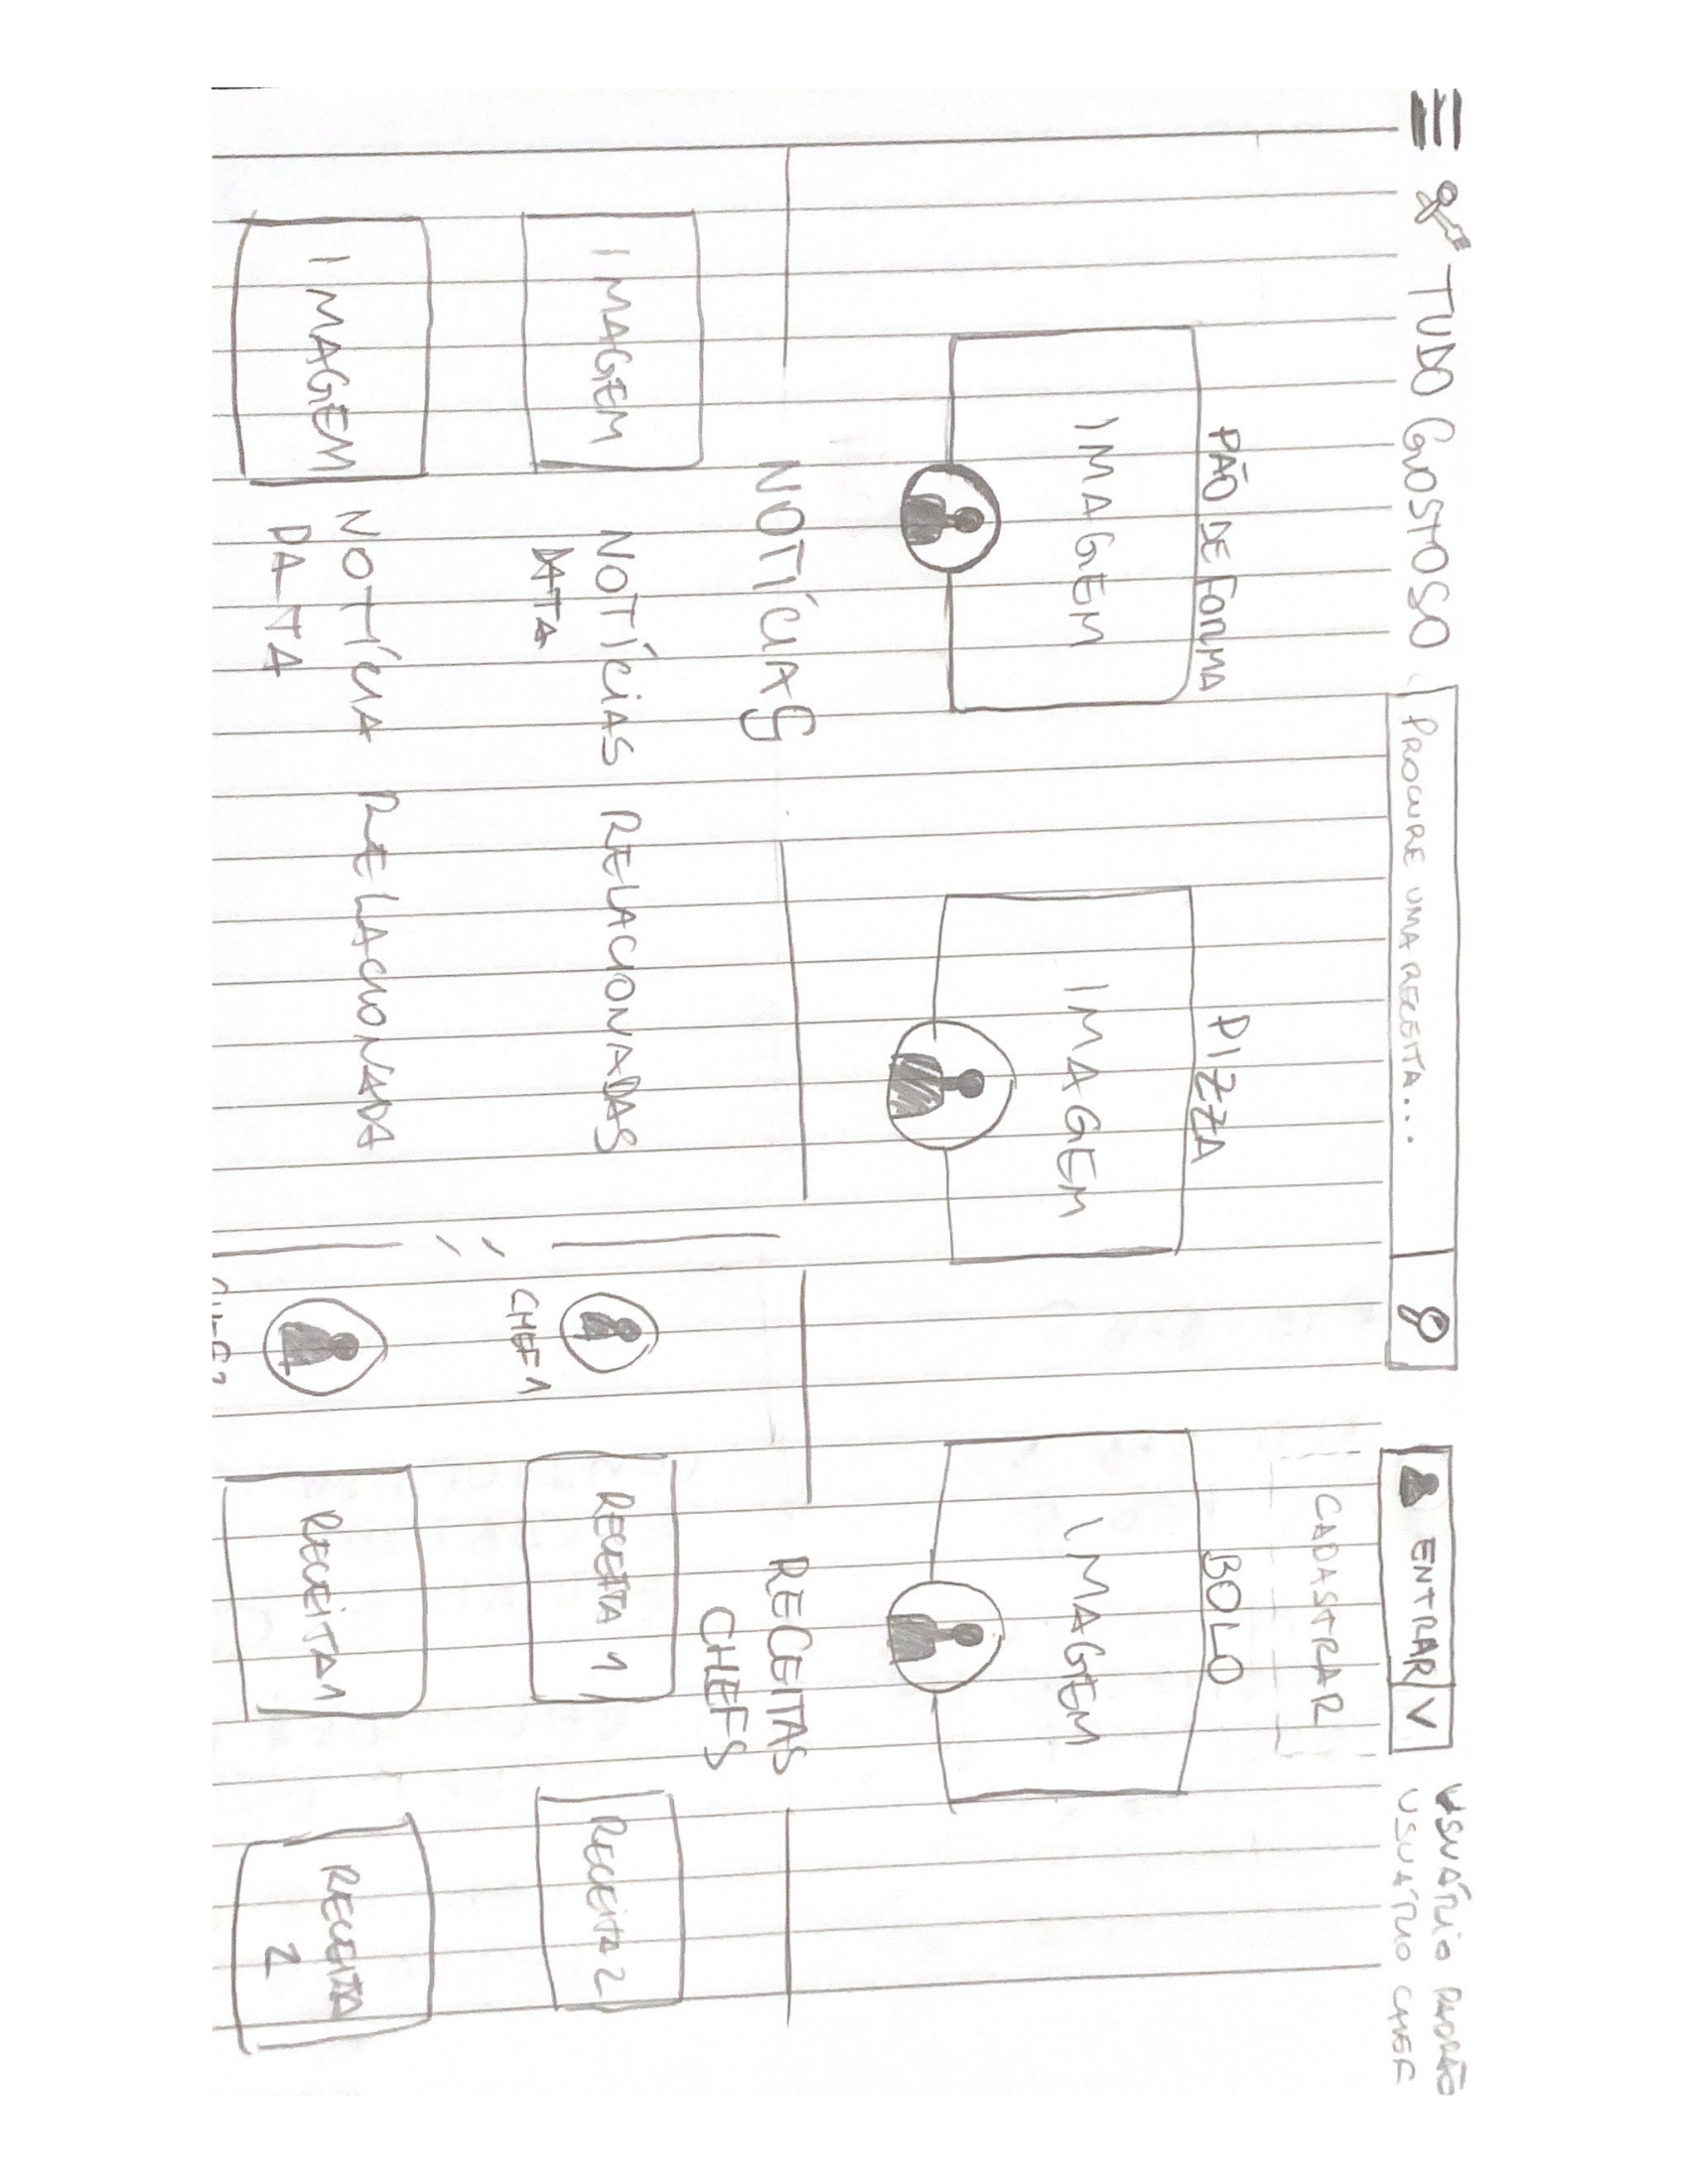 TUDO GOSTOSO
PROCURE UMA RECEITA...
ENTRAR V
USUÁRIO PADRÃO
USUÁRIO CHEF
CADASTRAR
PÃO DE FORMA
PIZZA
BOLO
IMAGEM
IMAGEM
IMAGEM
NOTÍCIAS
IMAGEM
NOTÍCIAS RELACIONADAS
DATA
IMAGEM
NOTÍCIA RELACIONADA
DATA
RECEITAS
CHEFS
CHEF 1
RECEITA 1
RECEITA 2
RECEITA 1
RECEITA
2